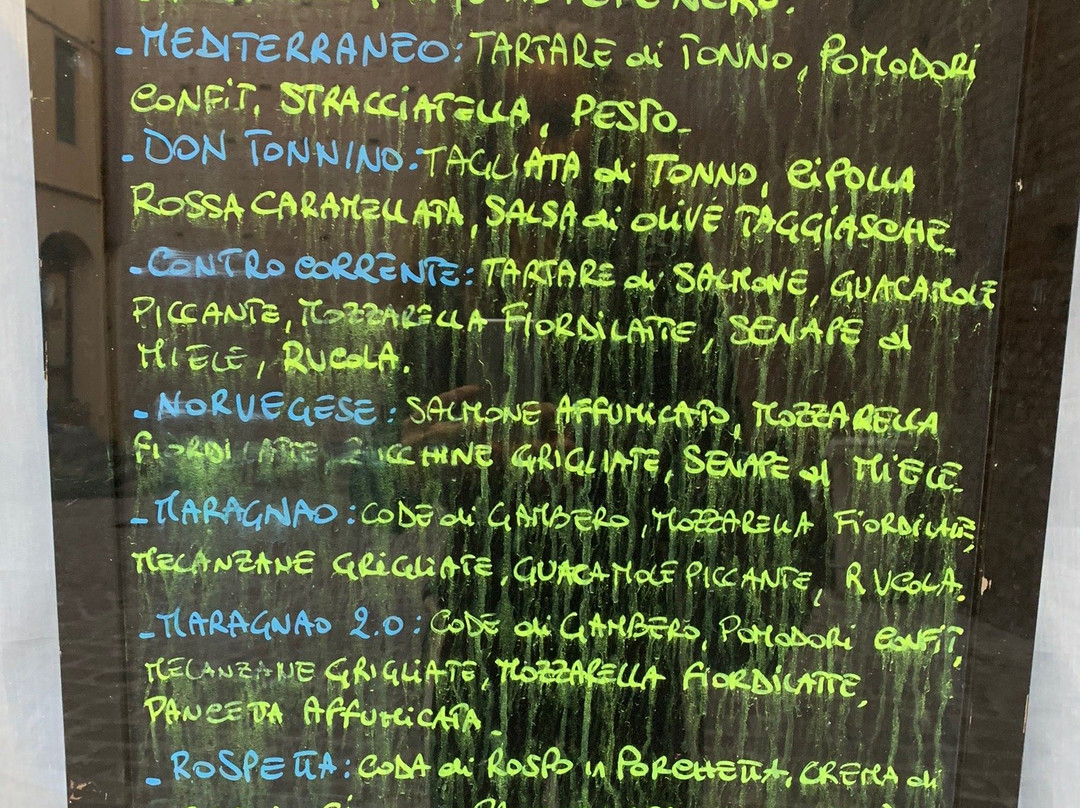 - MEDITERRANEO: TARTARE di TONNO, POMODORI
CONFIT, STRACCIATELLA, PESTO.
- DON TONNINO: TAGLIATA di TONNO, CIPOLLA
ROSSA CARAMELLATA, SALSA di OLIVE TAGGIASCHE.
- CONTRO CORRENTE: TARTARE di SALMONE, GUACAMOLE
PICCANTE, MOZZARELLA FIORDILATTE, SENAPE al
MIELE, RUCOLA.
- NORVEGESE: SALMONE AFFUMICATO, MOZZARELLA
FIORDILATTE, ZUCCHINE GRIGLIATE, SENAPE al MIELE.
- MARAGNAO: CODE di GAMBERO, MOZZARELLA FIORDILATTE,
MELANZANE GRIGLIATE, GUACAMOLE PICCANTE, RUCOLA.
- MARAGNAO 2.0: CODE di GAMBERO, POMODORI CONFIT,
MELANZANE GRIGLIATE, MOZZARELLA FIORDILATTE,
PANCETTA AFFUMICATA.
- ROSPETTA: CODA di ROSPO in PORCHETTA, CREMA di